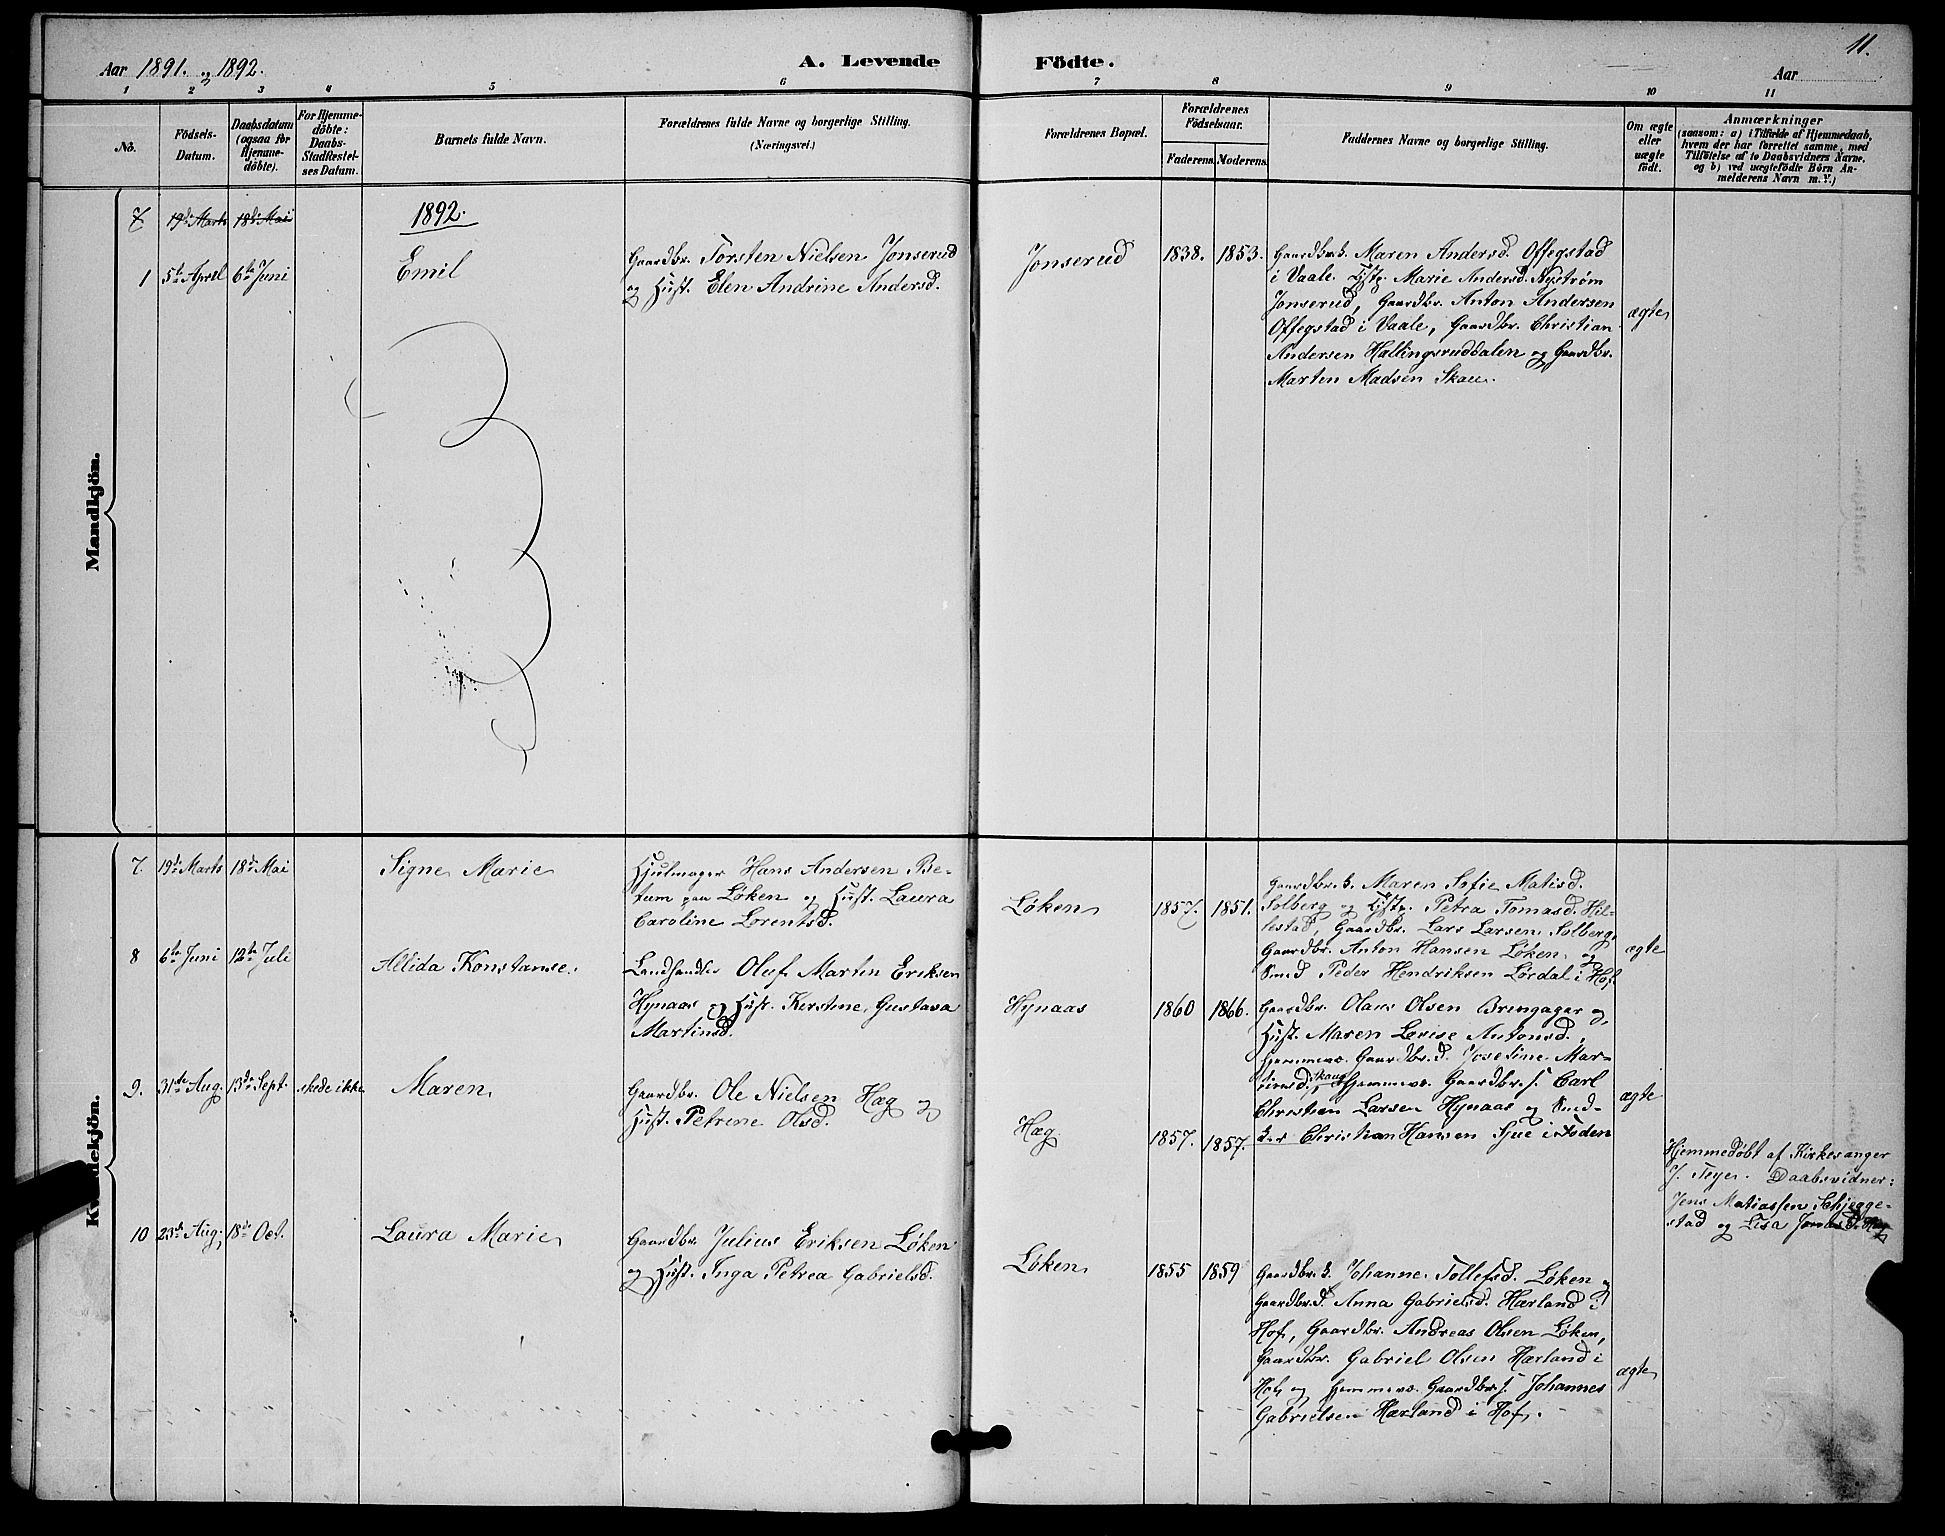 Aar 1891. og 1892.
A. Levende Födte.
11.
Aar
1 2 3 4 5 6 7 8 9 10 11
No.
Födsels-
Datum.
Daabsdatum
(ogsaa for
Hjemme-
döbte).
For Hjemme-
döbte:
Daabs-
Stadfæstel-
ses Datum.
Barnets fulde Navn.
Forældrenes fulde Navne og borgerlige Stilling.
(Næringsvei.)
Forældrenes Bopæl.
Forældrenes
Födselsaar.
Faderens. Moderens.
Faddernes Navne og borgerlige Stilling.
Om ægte
eller
uægte
födt.
Anmærkninger
(saasom: a) i Tilfælde af Hjemmedaab,
hvem der har forrettet samme, med
Tilföielse af to Daabsvidners Navne,
og b) ved uægtefödte Börn An-
melderens Navn m. V.)
Mandkjön.
7 19de Marts 18de Mai
1892.
1 5te April 6te Juni
Emil
Gaardbr. Torsten Nielsen Jonserud
og Hust. Elen Andrine Andersd.
Jonserud
1838. 1853.
Gaardbr.k. Maren Andersd. Offegstad
i Vaale. Tjstp. Marie Andersd. Nystrøm
Jonserud, Gaardbr. Anton Andersen
Offegstad i Vaale, Gaardbr. Christian
Andersen Hallingsruddalen og Gaardbr.
Marten Madsen Skau.
ægte
Kvindekjön.
7. 19de Marts 18de Mai
Signe Marie
Hjulmager Hans Andersen Be-
tum paa Løken og Hust. Laura
Caroline Lorentsd.
Løken
1857. 1851.
Gaardbr.k. Maren Sofie Matisd.
Solberg og Tjstp. Petra Tomasd. Hil-
lestad, Gaardbr. Lars Larsen Solberg,
Gaardbr. Anton Hansen Løken og
Smed Peder Hendriksen Lørdal i Hof
ægte
8 6te Juni 12te Juli
Allida Konstanse.
Landhandler Oluf Martin Eriksen
Hynaas og Hust. Kerstine Gustava
Martinsd.
Hynaas
1860 1866.
Gaardbr. Olaus Olsen Bringager og
Hust. Maren Lovise Antonsd.,
hjemmevs. Gaardbr.d. Josefine Mar-
tinsd. Skaug, hjemmevs. Gaardbr.s. Carl
Christian Larsen Hynaas og Smed-
ker Christian Hansen Sjue i Foden
ægte
9. 31te Aug. 13de Sept. skede ikke
Maren
Gaardbr. Ole Nielsen Hæg og
Hust. Petrine Olsd.
Hæg
1857. 1857.
Hjemmedøbt af Kirkesanger
J. Teyer. Daabsvidner:
Jens Matiassen Schjegge-
stad og Lisa
10 23de Aug. 18de Oct.
Laura Marie
Gaardbr. Julius Eriksen Løken
og Hust. Inga Petrea Gabrielsd.
Løken
1855 1859
Gaardbr.k. Johanne Tollefsd. Løken og
Gaardbr.d. Anna Gabrielsd. Hærland i
Hof, Gaardbr. Andreas Olsen Løken,
Gaardbr. Gabriel Olsen Hærland i
Hof og hjemmevs. Gaardbr.s. Johannes
Gabrielsen Hærland i Hof.
ægte